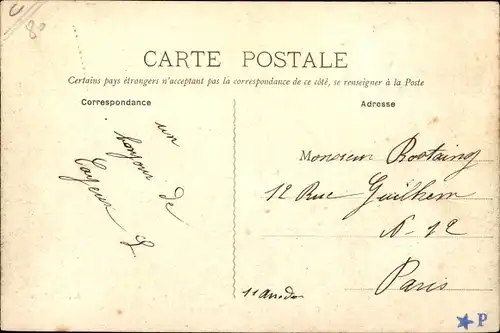 80
CARTE POSTALE
Certains pays étrangers n'acceptant pas la correspondance de ce côté, se renseigner à la Poste
Correspondance
Adresse
un
bonjour de
Cayeux
Monsieur Rostaing
12 Rue Guilhem
N-12
Paris
P